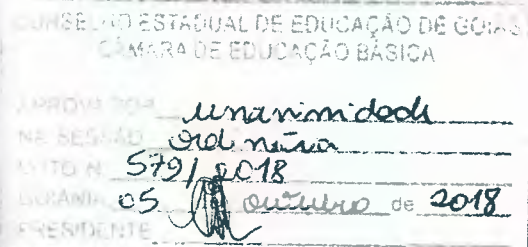 CONSELHO ESTADUAL DE EDUCAÇÃO DE GOIÁS
CÂMARA DE EDUCAÇÃO BÁSICA
APROV POR unanimidade
NA SESSÃO ordinária
VOTO N. 579/2018
GOIÂNIA 05 outubro de 2018
PRESIDENTE